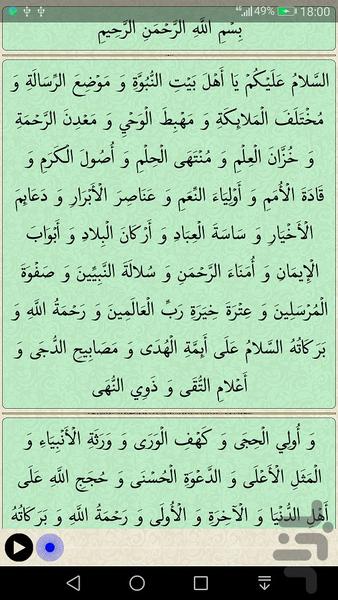 49% 18:00
بِسْمِ اللَّهِ الرَّحْمَنِ الرَّحِيمِ
السَّلامُ عَلَيْكُمْ يَا أَهْلَ بَيْتِ النُّبُوَّةِ وَ مَوْضِعَ الرِّسَالَةِ وَ
مُخْتَلَفَ الْمَلائِكَةِ وَ مَهْبِطَ الْوَحْيِ وَ مَعْدِنَ الرَّحْمَةِ
وَ خُزَّانَ الْعِلْمِ وَ مُنْتَهَى الْحِلْمِ وَ أُصُولَ الْكَرَمِ وَ
قَادَةَ الْأُمَمِ وَ أَوْلِيَاءَ النِّعَمِ وَ عَنَاصِرَ الْأَبْرَارِ وَ دَعَائِمَ
الْأَخْيَارِ وَ سَاسَةَ الْعِبَادِ وَ أَرْكَانَ الْبِلادِ وَ أَبْوَابَ
الْإِيمَانِ وَ أُمَنَاءَ الرَّحْمَنِ وَ سُلالَةَ النَّبِيِّينَ وَ صَفْوَةَ
الْمُرْسَلِينَ وَ عِتْرَةَ خِيَرَةِ رَبِّ الْعَالَمِينَ وَ رَحْمَةُ اللَّهِ وَ
بَرَكَاتُهُ السَّلامُ عَلَى أَئِمَّةِ الْهُدَى وَ مَصَابِيحِ الدُّجَى وَ
أَعْلامِ التُّقَى وَ ذَوِي النُّهَى
وَ أُولِي الْحِجَى وَ كَهْفِ الْوَرَى وَ وَرَثَةِ الْأَنْبِيَاءِ وَ
الْمَثَلِ الْأَعْلَى وَ الدَّعْوَةِ الْحُسْنَى وَ حُجَجِ اللَّهِ عَلَى
أَهْلِ الدُّنْيَا وَ الْآخِرَةِ وَ الْأُولَى وَ رَحْمَةُ اللَّهِ وَ بَرَكَاتُهُ